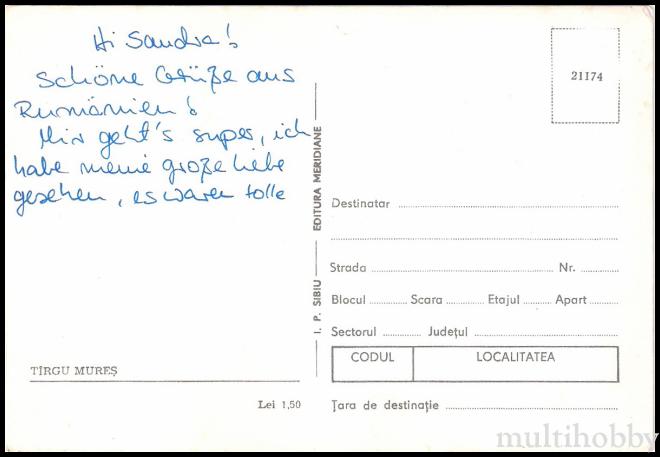 Hi Sandra!
Schöne Grüße aus
Rumänien!
Mir geht's super, ich
habe meine große Liebe
gesehen, es waren tolle
TÎRGU MUREȘ
Lei 1,50
I. P. SIBIU — EDITURA MERIDIANE
21174
Destinatar
Strada Nr.
Blocul Scara Etajul Apart
Sectorul Județul
CODUL LOCALITATEA
Țara de destinație
multihobby